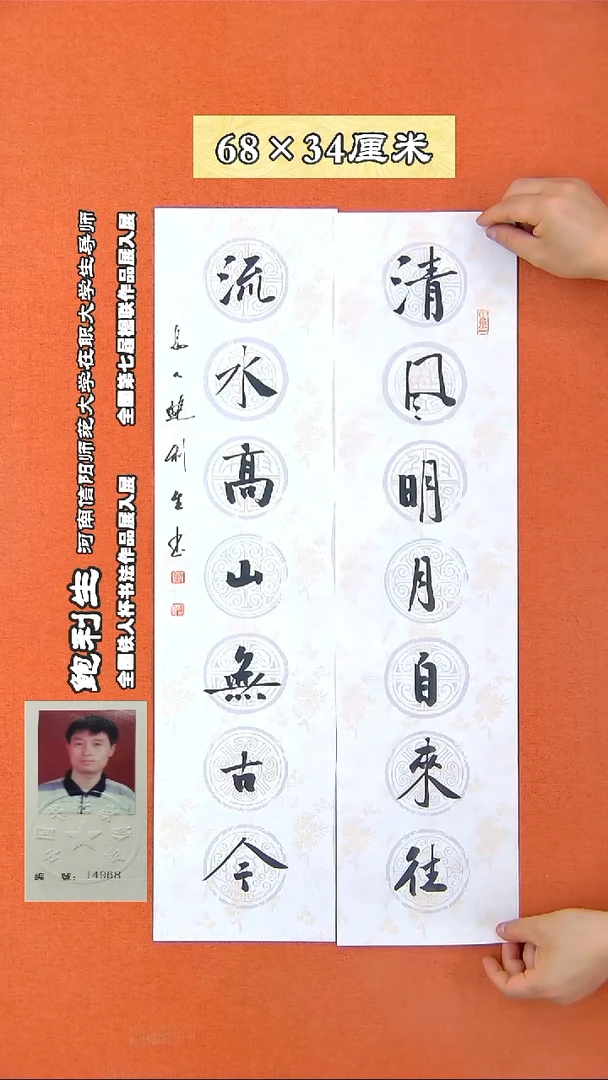 68×34厘米
清風明月自來往
流水高山無古今
長人鮑利生書
鲍利生 河南信阳师范大学在职大学生导师
全国铁人杯书法作品展入展 全国第七届楹联作品展入展
编 號：14968